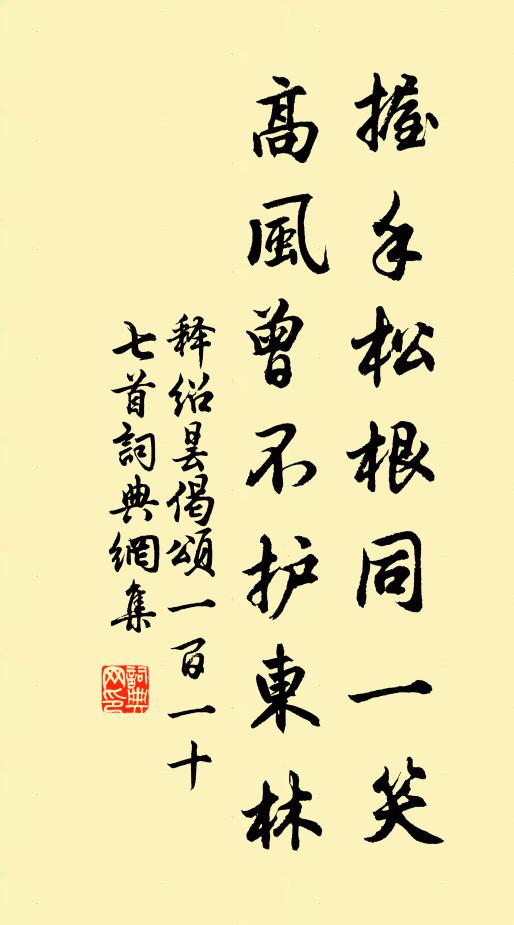 握手松根同一笑
高風曾不护東林
释绍昙偈頌一百一十
七首詞典網集
詞典
网印